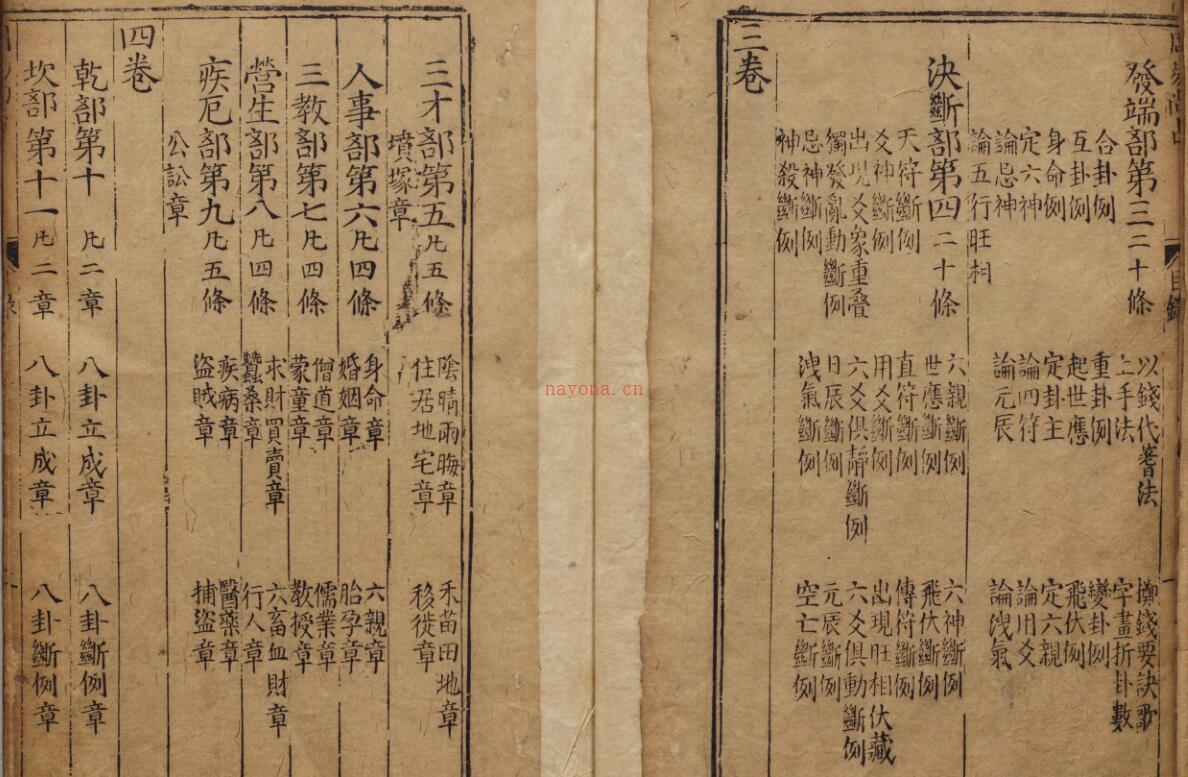 目錄
發端部第三二十條 以錢代蓍法 擲錢要訣歌
上手法 字畫折卦數
合卦例 重卦例 變卦例
互卦例 起世應 飛伏例
身命例 定卦主 定六親
定六神 論四符 論用爻
論忌神 論元辰 論洩氣
論五行旺相
決斷部第四二十條 六親斷例 六神斷例
世應斷例 飛伏斷例
天符斷例 直符斷例 傳符斷例
爻神斷例 用爻斷例 出現旺相伏藏
出現爻衆重疊 六爻俱靜斷例 六爻俱動斷例
獨發亂動斷例 日辰斷例 元辰斷例
忌神斷例 洩氣斷例 空亡斷例
神殺斷例
三卷
三才部第五凡五條 陰晴雨晦章 禾苗田地章
住居地宅章 移徙章
墳塚章
人事部第六凡四條 身命章 六親章
婚姻章 胎孕章
三教部第七凡四條 僧道章 儒業章
蒙童章 教授章
營生部第八凡四條 求財買賣章 六畜血財章
蠶桑章 行人章
疾厄部第九凡五條 疾病章 醫藥章
盜賊章 捕盜章
公訟章
四卷
乾部第十 凡二章 八卦立成章 八卦斷例章
坎部第十一凡二章 八卦立成章 八卦斷例章
nayona.cn